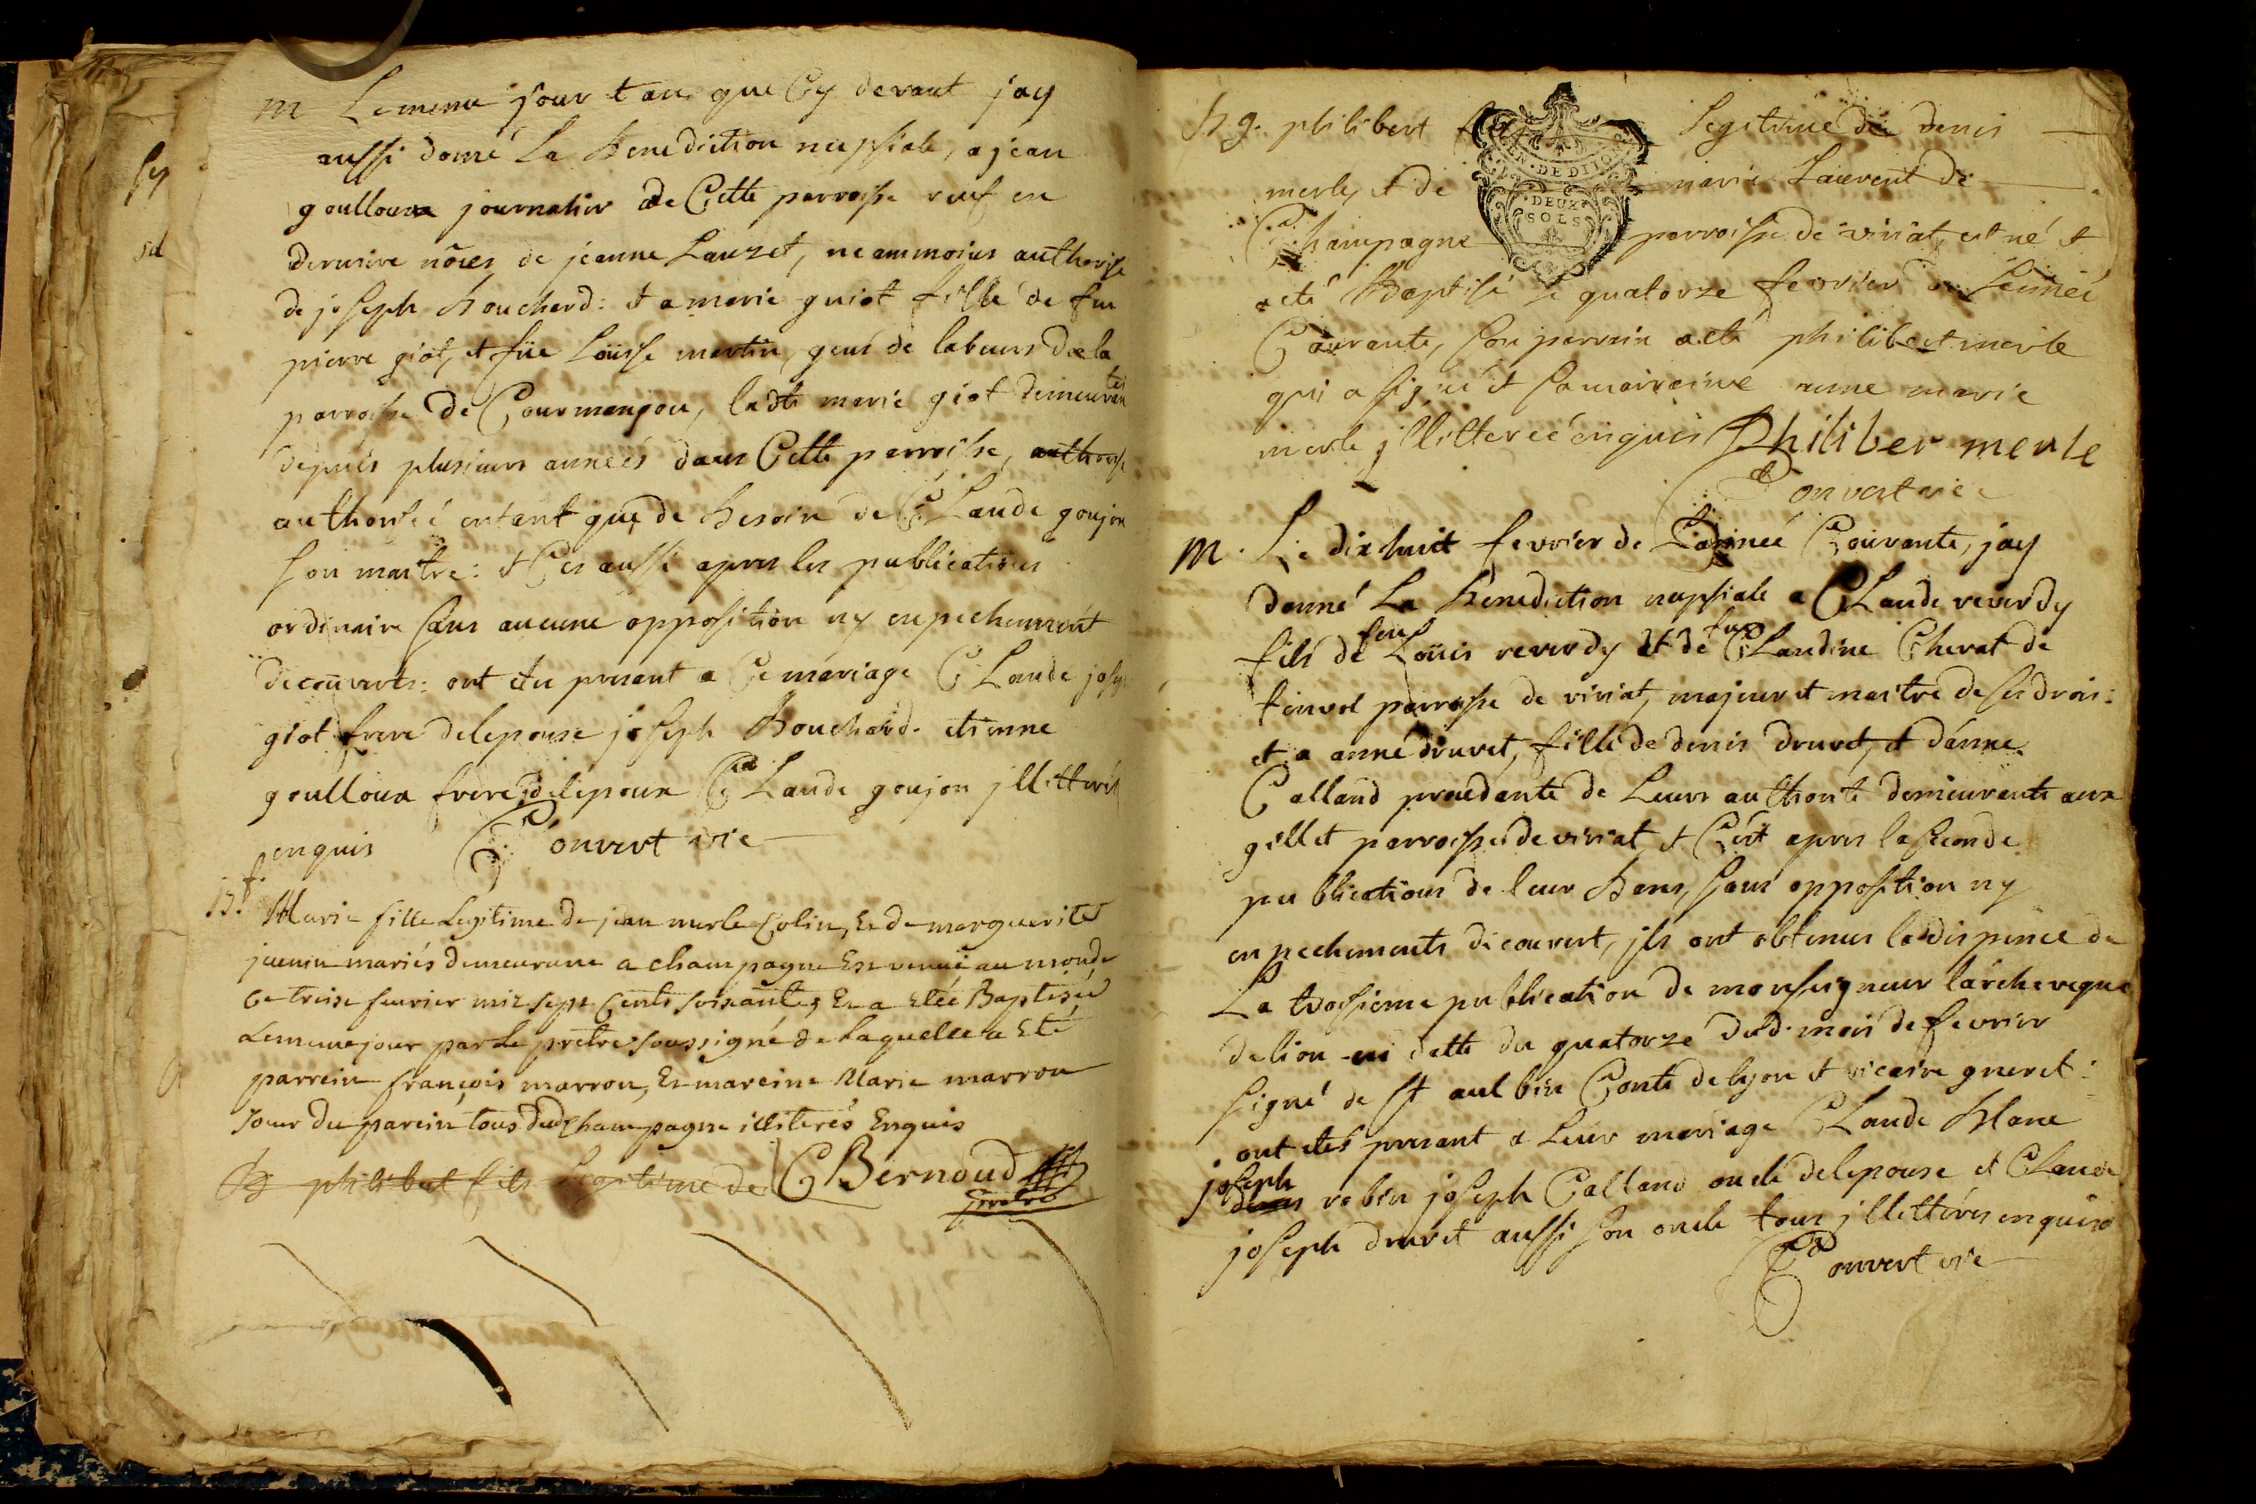 m Le meme jour et an que Cy devant jay
aussi donné La Benediction nuptiale, a jean
goulloux journalier de Cette parroisse veuf en
derniere nôces de jeanne Lauzet, neammoins authorisé
de joseph Bouchard: et a marie guiot fille de feu
pierre giot, et füe Loüise martin, gens de labeurs de la
parroisse de Courmangou, ladte marie giot demeurante
depuis plusieurs anneés dans Cette parroisse,
authorisеé entant que de besoin de CLaude goujon
son maitre: et Ces aussi apres les publications
ordinaire sans aucune opposition ny enpechement
decouverts: ont etu present a Ce mariage CLaude joseph
giot frere delepouse joseph Bouchard. etienne
goulloux frere delepoux CLaude goujon jllitterés
enquis Convert vic
B.f. Marie fille Legitime de jean merle Colin, Et de marguerite
juenin mariés demeurant a champagne Est venuë au monde
Ce treise feuvrier mil sept Cents soixante, Et a Etéé Baptisée
Le meme jour par Le prêtre soussigné de Laquelle a Eté
parrein françois marron, Et mareine Marie marron
soeur du parein tous dud Champagne illiterés Enquis
B philibert fils Legitime de C Bernoud
prêtre
B g. philibert Legitime de denis
merle, et de marie Laurent de
Champagne parroisse de viriat, est né et
a eté Baptisé Le quatorze fevrier de Lannéé
Courante, son parrein a eté philibert merle
qui a signé et sa marreine anne marie
merle jllittereé enquis Philiber merle
Convert vic
m. Le dix huit fevrier de Lannéé Courante, jay
donné La Benediction nuptiale a CLaude reverdy
fils de feu Loüis reverdy et de fue CLaudine Chevat de
tenvol parroisse de viriat, majeur et maitre de ses drois:
et a anne druvet, fille de denis druvet, et d'anne
Calland procedante de Leurs authorité demeurante aux
gillet parroisse de viriat, et C'est apres la seconde
publications de leur Bans, sans opposition ny
enpechements decouvert, jls ont obtenus la dispence de
La troisieme publication de monseigneur larcheveque
de lion en datte du quatorze dud. mois de fevrier
signé de St aulbin Conte de lyon et vicaire gneret:
ont etes presant a Leur mariage CLaude Blanc
joseph robin joseph Calland oncle delepouse et Claude
joseph druvet aussi son oncle tous jllettérés enquis
Convert vic
EN · DE DIJON
· DEUX ·
SOLS